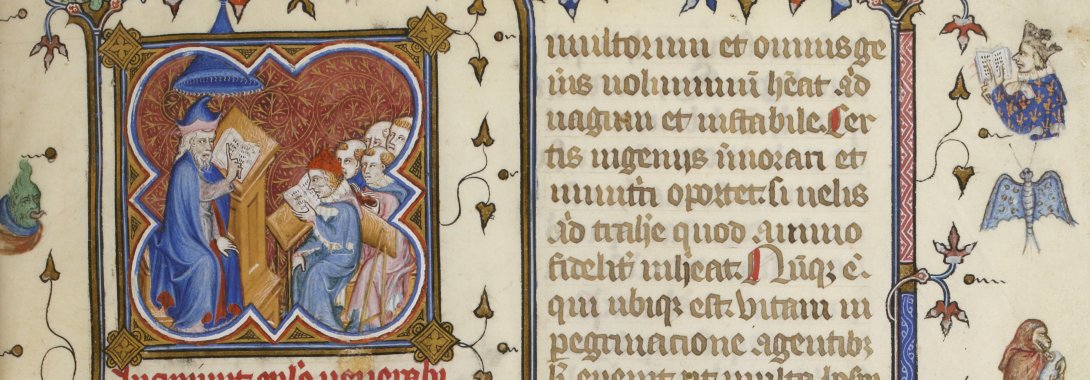 multorum et omnis ge
nis uoluminum hēat ad
uagum et instabile. Cer
tis ingenijs īmorari et
inniti oportet. si uelis
ad trahē quod animo
fidelit inheat. Nūqz ē.
qui ubiqz est. Vitam in
peregrinacione agentibz